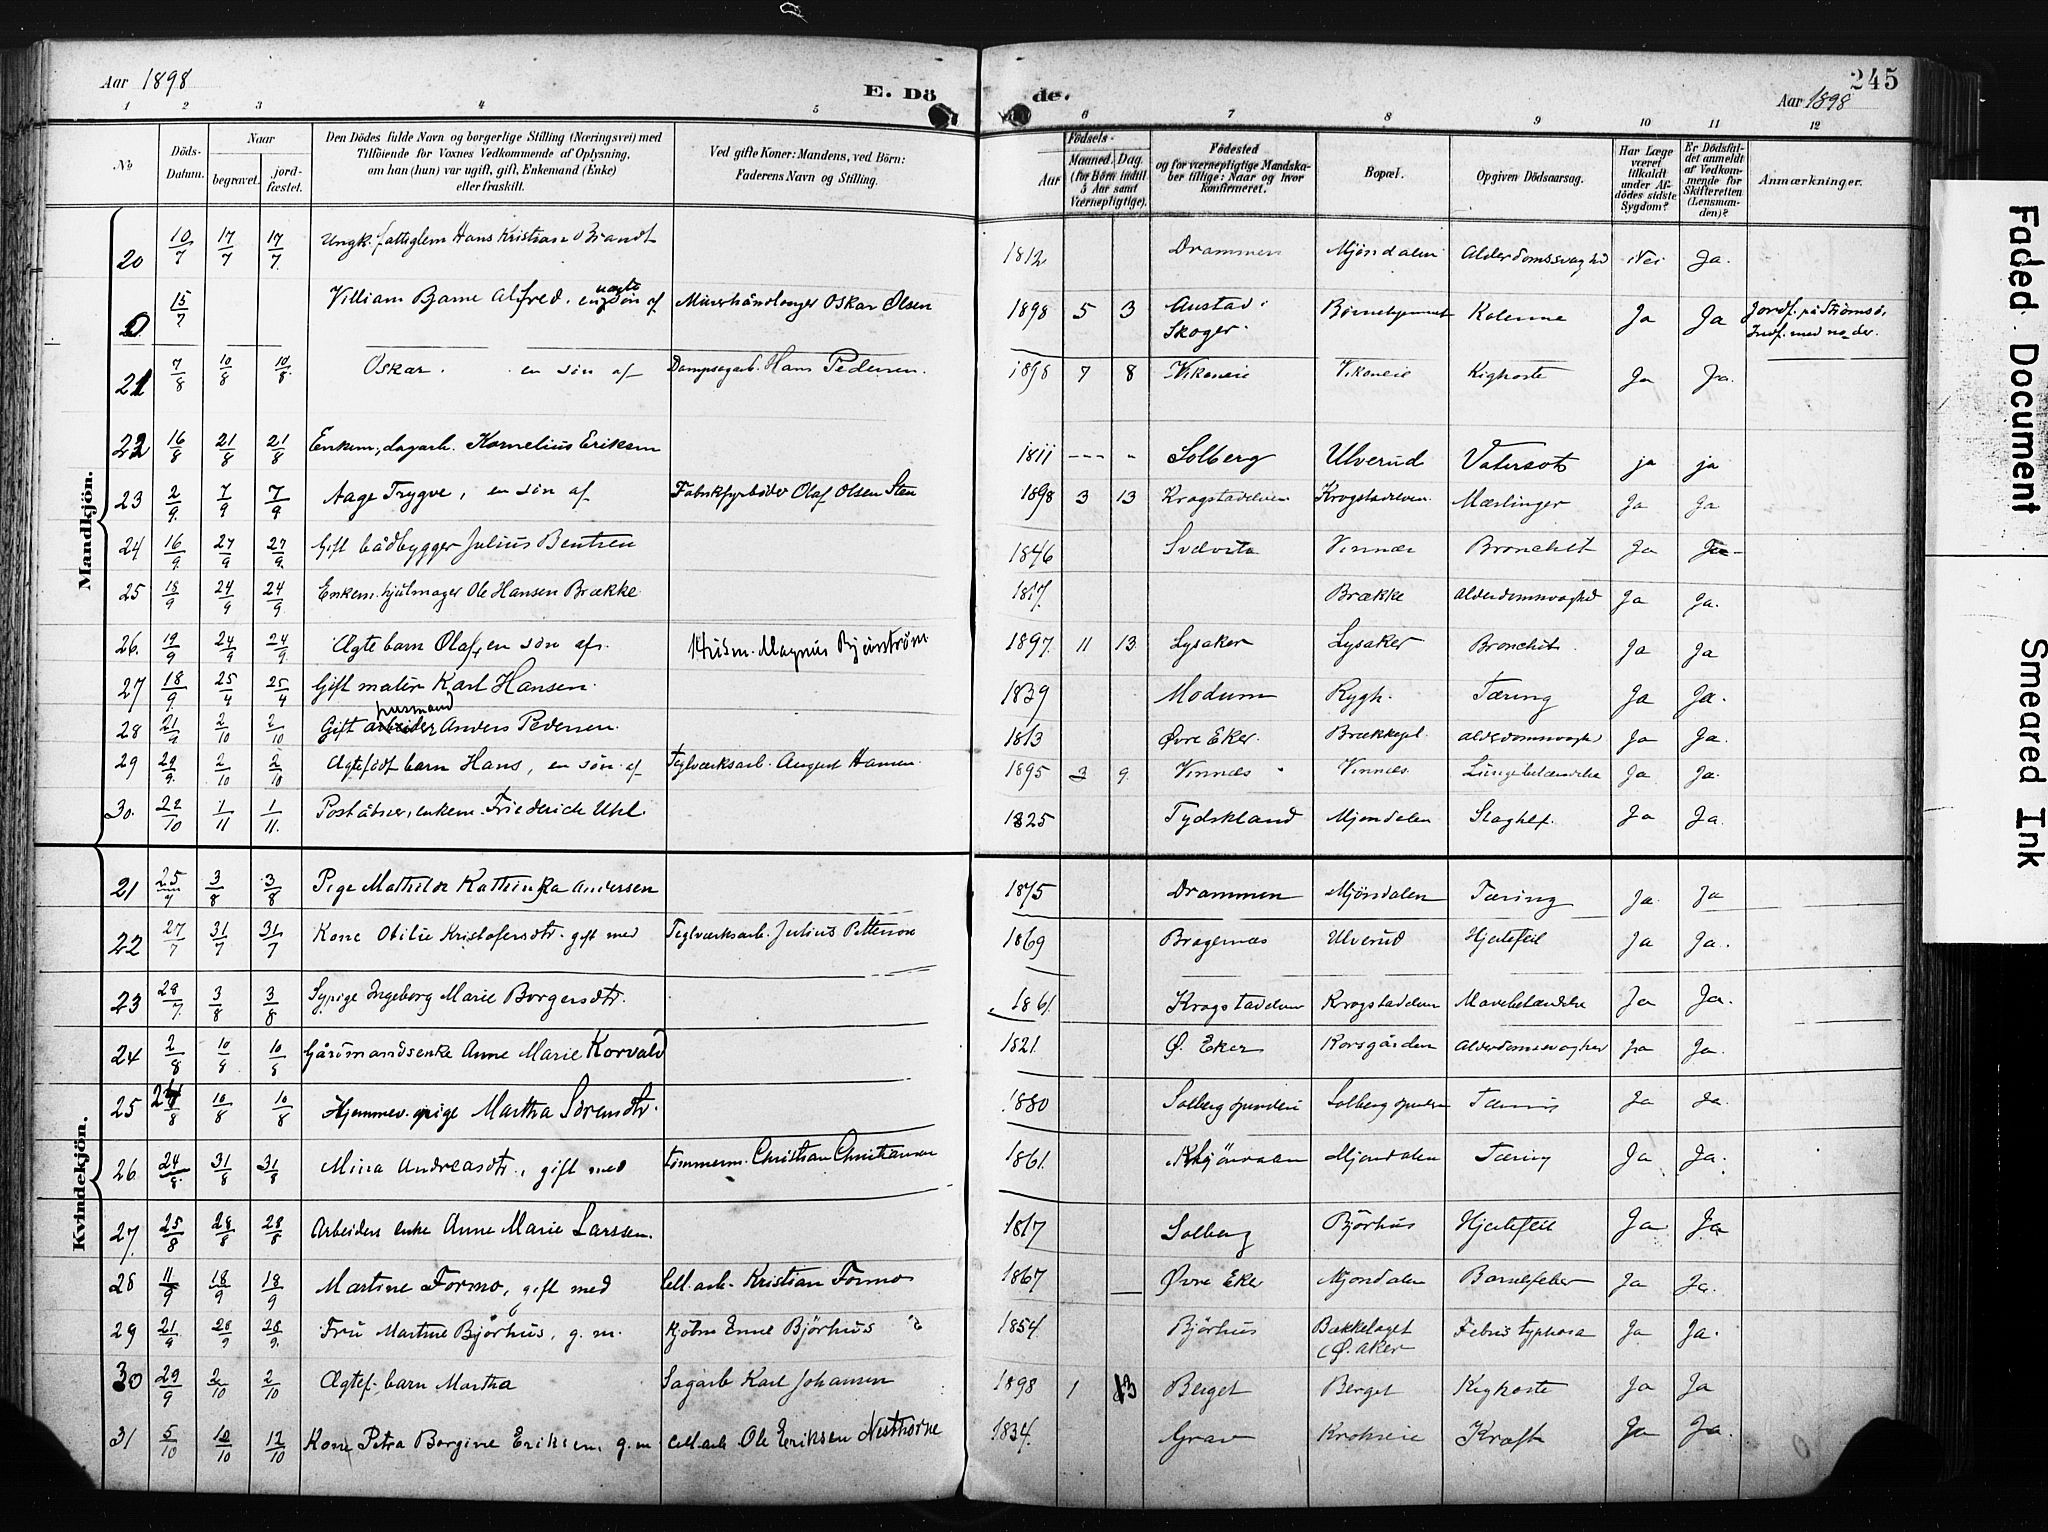 Aar 1898
E. Dö
de.
245
Aar 1898
1 2 3 4 5 6 7 8 9 10 11 12
No. Döds-Datum. Naar begravet. jordfæstet. Den Dödes fulde Navn og borgerlige Stilling (Næringsvei) med Tilföiende for Voxnes Vedkommende af Oplysning, om han (hun) var ugift, gift, Enkemand (Enke) eller fraskilt. Ved gifte Koner: Mandens, ved Börn: Faderens Navn og Stilling. Födsels- Aar Maaned. Dag. (for Børn indtil 5 Aar samt Værnepligtige). Födested og for værnepligtige Mandskaber tillige: Naar og hvor Konfirmeret. Bopæl. Opgiven Dödsaarsag. Har Læge været tilkaldt under Afdödes sidste Sygdom? Er Dödsfaldet anmeldt af Vedkommende for Skifteretten (Lensmanden)? Anmærkninger.
Mandkjön.
20 10/7 17/7 17/7 Ungk. fattiglem Hans Kristian Brandt 1812 Drammen Mjöndalen Alderdomssvaghed Nei Ja.
0 15/7 Villiam Bjarne Alfred. uægte søn af Murerhåndlanger Oskar Olsen 1898 5 3 Austad i Skoger. Kolerine Ja Ja Jordf. på Strömsö.
21 7/8 10/8 10/8 Oskar. en søn af Dampsagarb. Hans Pedersen. 1898 7 8 Vikaneie Vikaneie Kighoste Ja Ja.
22 16/8 21/8 21/8 Enkem., dagarb. Kornelius Eriksen 1811 --- " Solberg Ulverud Vatersot ja ja
23 2/9 7/9 7/9 Aage Trygve, en søn af Fabrikfyrbøder Olaf Olsen Sten 1898 3 13 Krogstadelven Krogstadelven. Mæslinger Ja Ja
24 16/9 27/9 27/9 Gift bådbygger Julius Bentsen 1846 Svelvik Vinnæs Bronchit Ja Ja
25 18/9 24/9 24/9 Enkem. hjulmager Ole Hansen Brække 1817. Brække Alderdomssvaghed Ja Ja.
26. 19/9 24/9 24/9 Ægte barn Olaf, en søn af. Husm. Magnus Bjerström 1897. 11 13 Lysaker Lysaker Bronchit. Ja Ja
27 18/9 25/4 25/4 Gift maler Karl Hansen. 1839 Modum Rygh. Tæring Ja Ja.
28 21/9 2/10 2/10 Gift husmand Anders Pedersen. 1813 Øvre Eker. Brækkepl. Alderdomssvaghed Ja Ja.
29 29/9 2/10 2/10 Ægtefødt barn Hans, en søn af Teglværksarb. August Hansen. 1895 3 9 Vinnæs Vinnæs. Lungebetændelse Ja Ja.
30. 22/10 1/11 1/11. Postäbner, enkem. Friederich Uhl. 1825 Tydskland Mjøndalen Slagtilf. Ja Ja.
Kvindekjön.
21 25/7 3/8 3/8 Pige Mathilde Kathinka Andersen 1875 Drammen Mjöndalen Tæring Ja. Ja
22 27/7 31/7 31/7 Kone Otilie Kristofersdtr. gift med Teglværksarb. Julius Petterson 1869 Bragernæs Ulverud Hjertefeil Ja Ja.
23 28/7. 3/8 3/8 Sypige Ingeborg Marie Borgersdtr. 1861. Krogstadelven Krogstadelven Mavebetændelse Ja Ja.
24 2/8 10/8 10/8 Gårdmandsenke Anne Marie Korvald 1821. Ø. Eker Korsgården Alderdomssvaghed ja Ja.
25 24/8 10/8 10/8 Hjemmev. pige Martha Sørensdtr. 1880 Solberg spinderi Solberg spinderi Ja Ja.
26 24/8. 31/8 31/8 Mina Andreasdtr., gift med Tømmerm. Christian Christiansen 1861. Mjøndalen Tæring Ja Ja.
27. 25/8 28/8 28/8 Arbeiders enke Anne Marie Larssen. 1817 Solberg Björhus Hjertefeil Ja Ja
28 11/9 18/9 18/9 Martine Formo, gift med Cell.arb. Kristian Formo 1867 Øvre Eker Mjøndalen Barselfeber Ja Ja.
29 21/9 28/9 28/9. Fru Martine Björhus, g.m. Björhus 1854. Björhus Bækkelaget (Ø. Aker Febris typhosa Ja Ja.
30 29/9 2/10 2/10 Ægtef. barn Martha Sagarb Karl Johansen 1898 1 13 Berget Berget Kighoste Ja Ja
31 5/10 10/10 12/10 Kone Petra Borgine Eriksen, g.m. Cell.arb Ole Eriksen 1834. Grav Kroken Kræft Ja Ja.
Faded Document
Smeared Ink